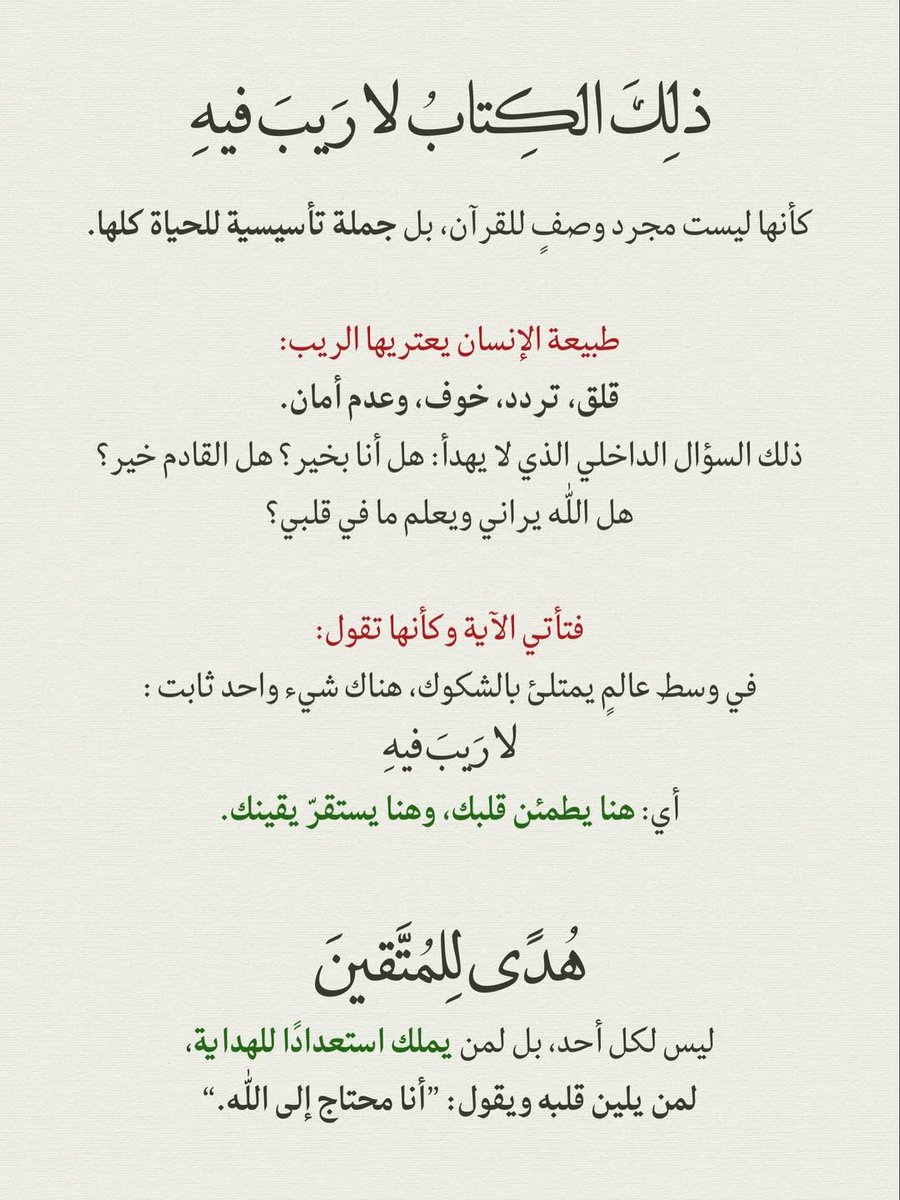 ذلِكَ الكِتابُ لا رَيبَ فيهِ
كأنها ليست مجرد وصفٍ للقرآن، بل جملة تأسيسية للحياة كلها.
طبيعة الإنسان يعتريها الريب:
قلق، تردد، خوف، وعدم أمان.
ذلك السؤال الداخلي الذي لا يهدأ: هل أنا بخير؟ هل القادم خير؟
هل الله يراني ويعلم ما في قلبي؟
فتأتي الآية وكأنها تقول:
في وسط عالمٍ يمتلئ بالشكوك، هناك شيء واحد ثابت :
لا رَيبَ فيهِ
أي: هنا يطمئن قلبك، وهنا يستقرّ يقينك.
هُدًى لِلمُتَّقينَ
ليس لكل أحد، بل لمن يملك استعدادًا للهداية،
لمن يلين قلبه ويقول: ”أنا محتاج إلى الله.“